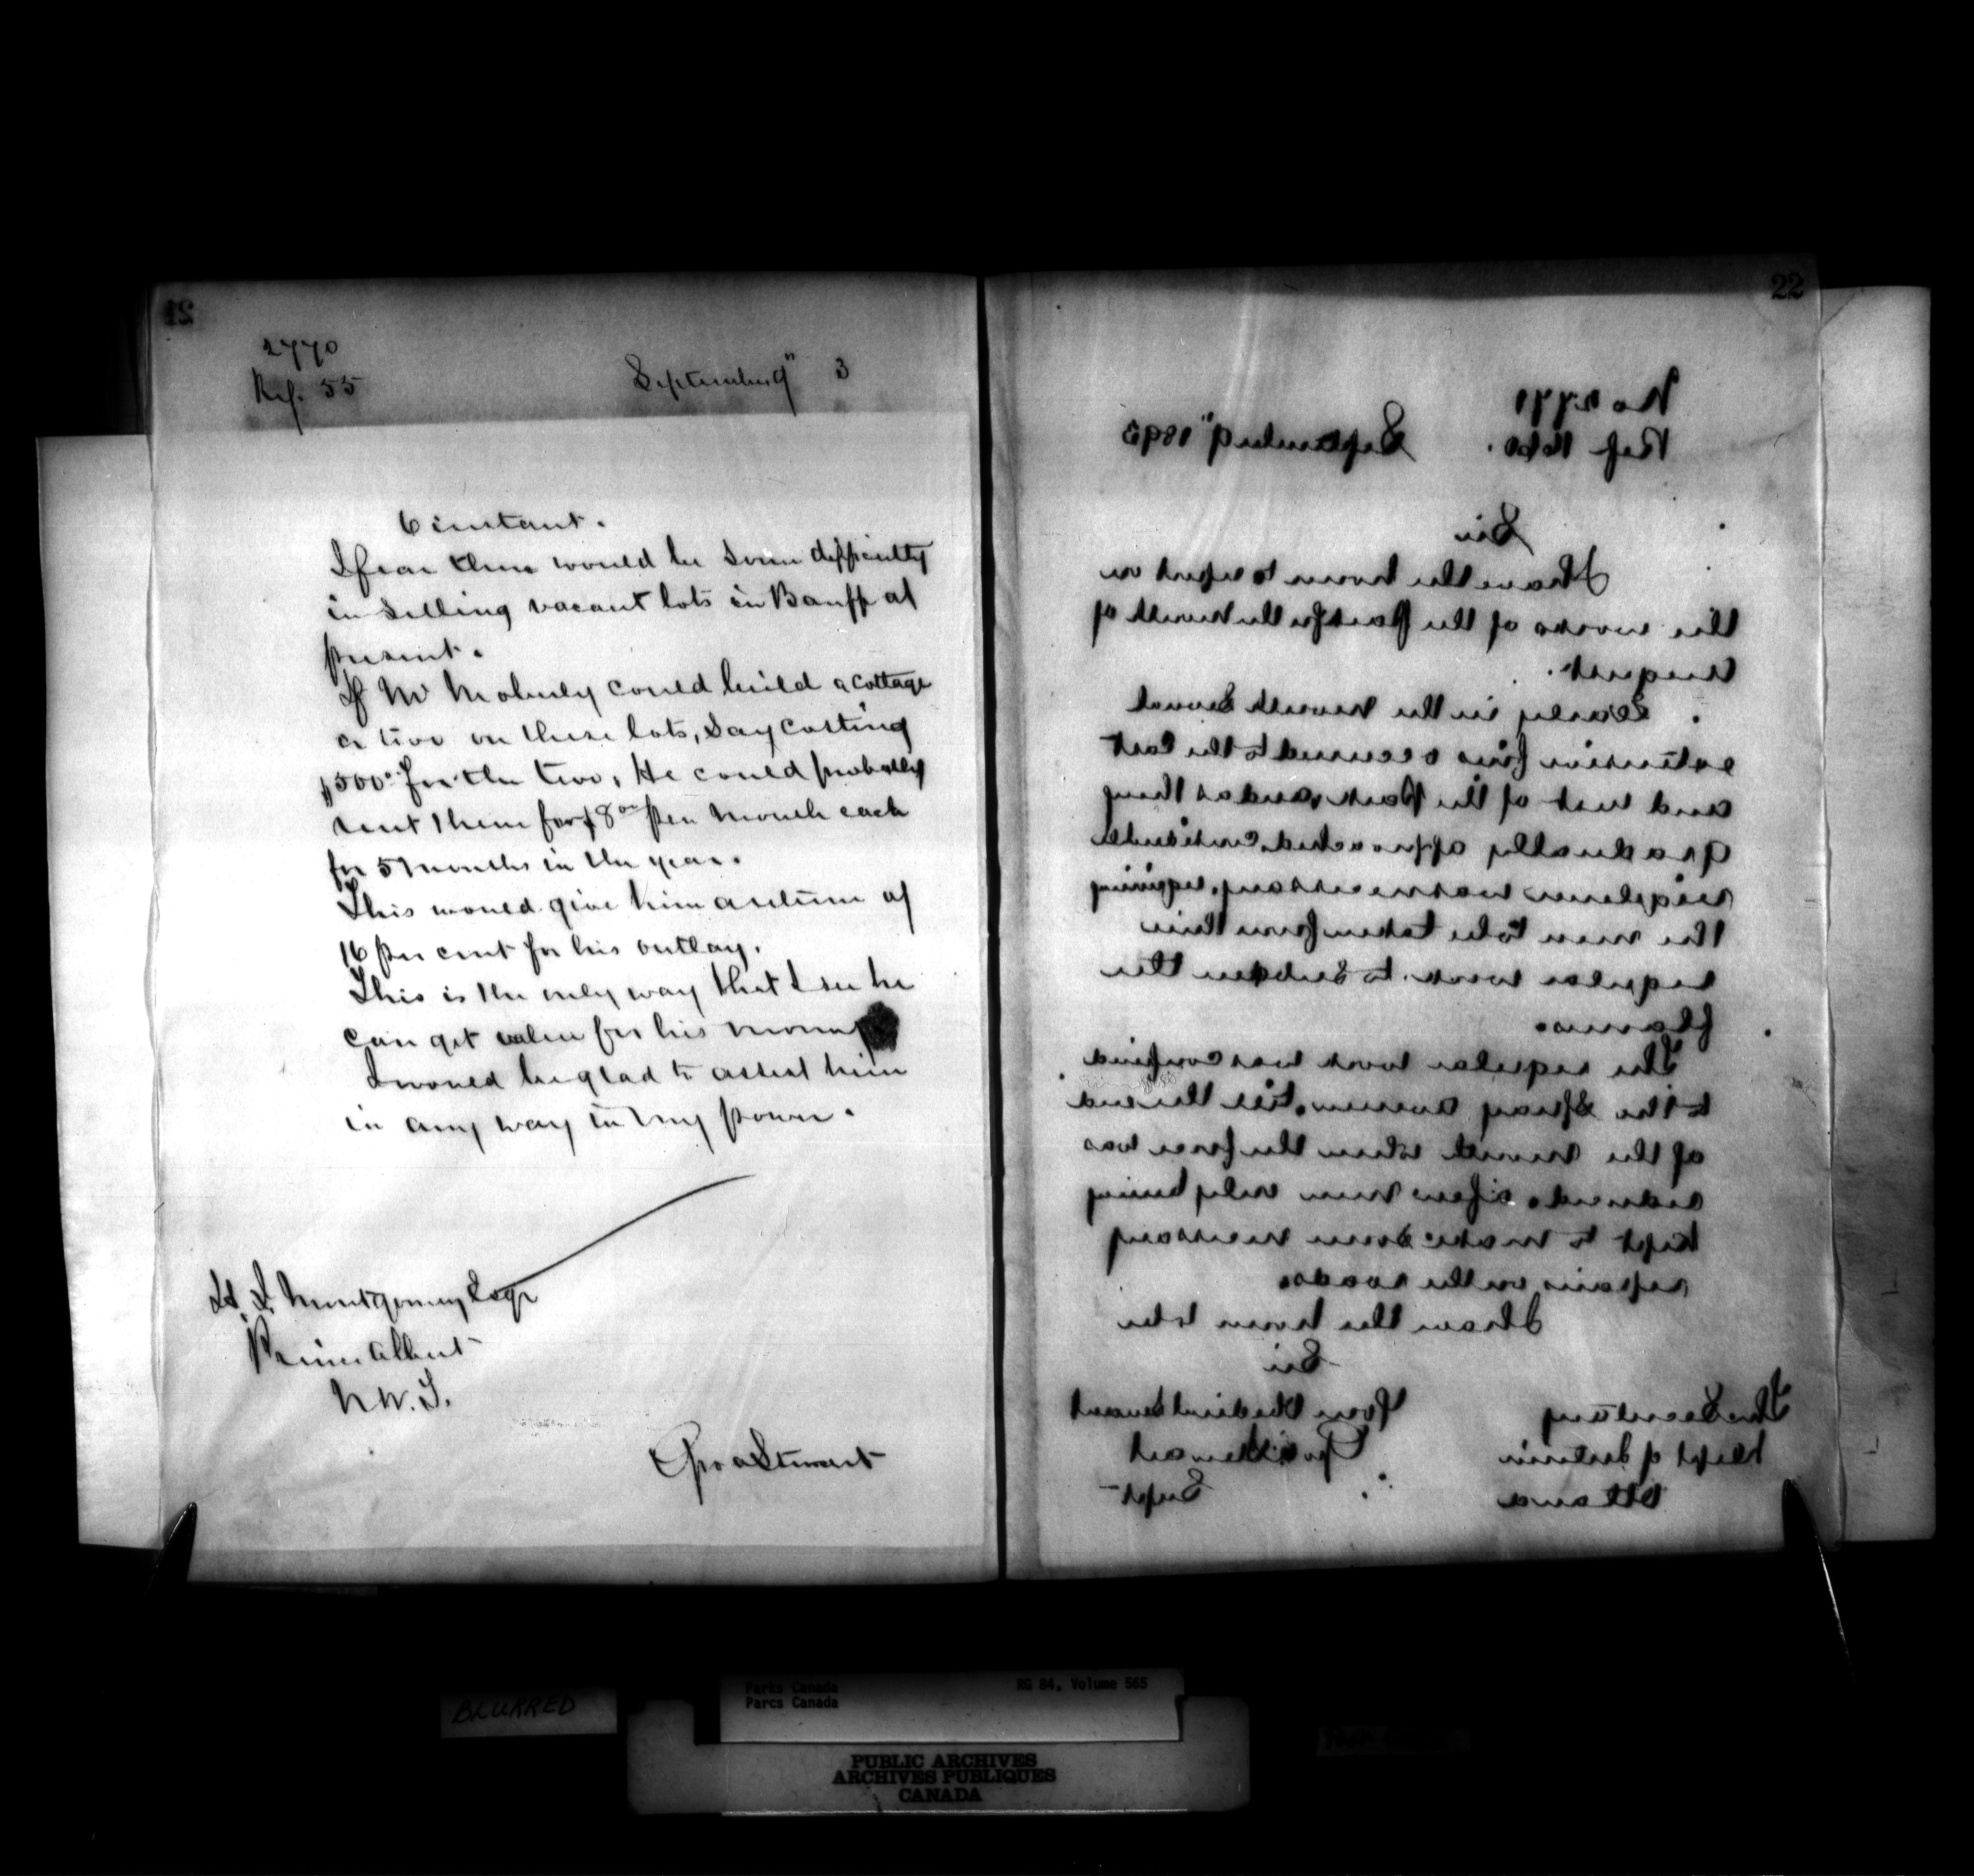 21
2770
Ref. 55 September 9" 3
6 instant.
I fear there would be some difficulty
in selling vacant lots in Banff at
present.
If Mr Moberly could build a cottage
or two on these lots, say costing
$500. for the two, He could probably
rent them for $8 00 per month each
for 5 months in the year.
This would give him a return of
16 per cent for his outlay.
This is the only way that I see he
can get value for his money
I would be glad to assist him
in any way in my power.
H. I. Montgomery Esqr
Prince Albert
N.W.T.
Geo A Stewart
22
No 2771
Ref. September 9" 1893
Sir
I have the honor to report on
the works of the Park for the month of
August.
Early in the month several
extensive fires occurred to the East
and west of the Park, and as they
gradually approached, considerable
vigilance was necessary, requiring
the men to be taken from their
regular work to subdue the
flames.
The regular work was confined
to the Spray Avenue, till the end
of the month when the force was
reduced, a few men only being
kept to make some necessary
repairs on the roads.
I have the honor to be
Sir
Your Obedient Servant
Geo A Stewart
Supt
The Secretary
Dept of Interior
Ottawa
BLURRED
Parks Canada RG 84, Volume 565
Parcs Canada
PUBLIC ARCHIVES
ARCHIVES PUBLIQUES
CANADA